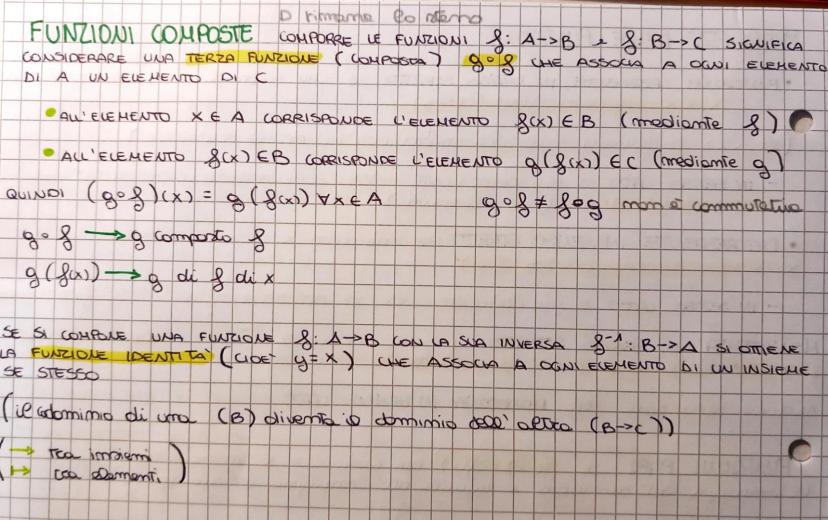 D rimane lo stesso
FUNZIONI COMPOSTE COMPORRE LE FUNZIONI f: A->B e f: B->C SIGNIFICA
CONSIDERARE UNA TERZA FUNZIONE (COMPOSTA) g∘f CHE ASSOCIA A OGNI ELEMENTO
DI A UN ELEMENTO DI C
• ALL'ELEMENTO X∈A CORRISPONDE L'ELEMENTO f(x)∈B (mediante f)
• ALL'ELEMENTO f(x)∈B CORRISPONDE L'ELEMENTO g(f(x))∈C (mediante g)
QUINDI (g∘f)(x) = g(f(x)) ∀x∈A g∘f ≠ f∘g non è commutativa
g∘f → g composto f
g(f(x)) → g di f di x
SE SI COMPONE UNA FUNZIONE f: A->B CON LA SUA INVERSA f⁻¹: B->A SI OTTIENE
LA FUNZIONE IDENTITA' (CIOE' y=x) CHE ASSOCIA A OGNI ELEMENTO DI UN INSIEME
SE STESSO
(il codominio di una (B) diventa il dominio dell'altra (B->C))
(→ tra insiemi
↦ tra elementi)